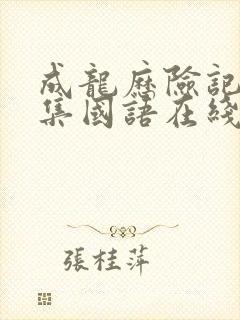 成龍歷險記
集國語在綫
張桂萍